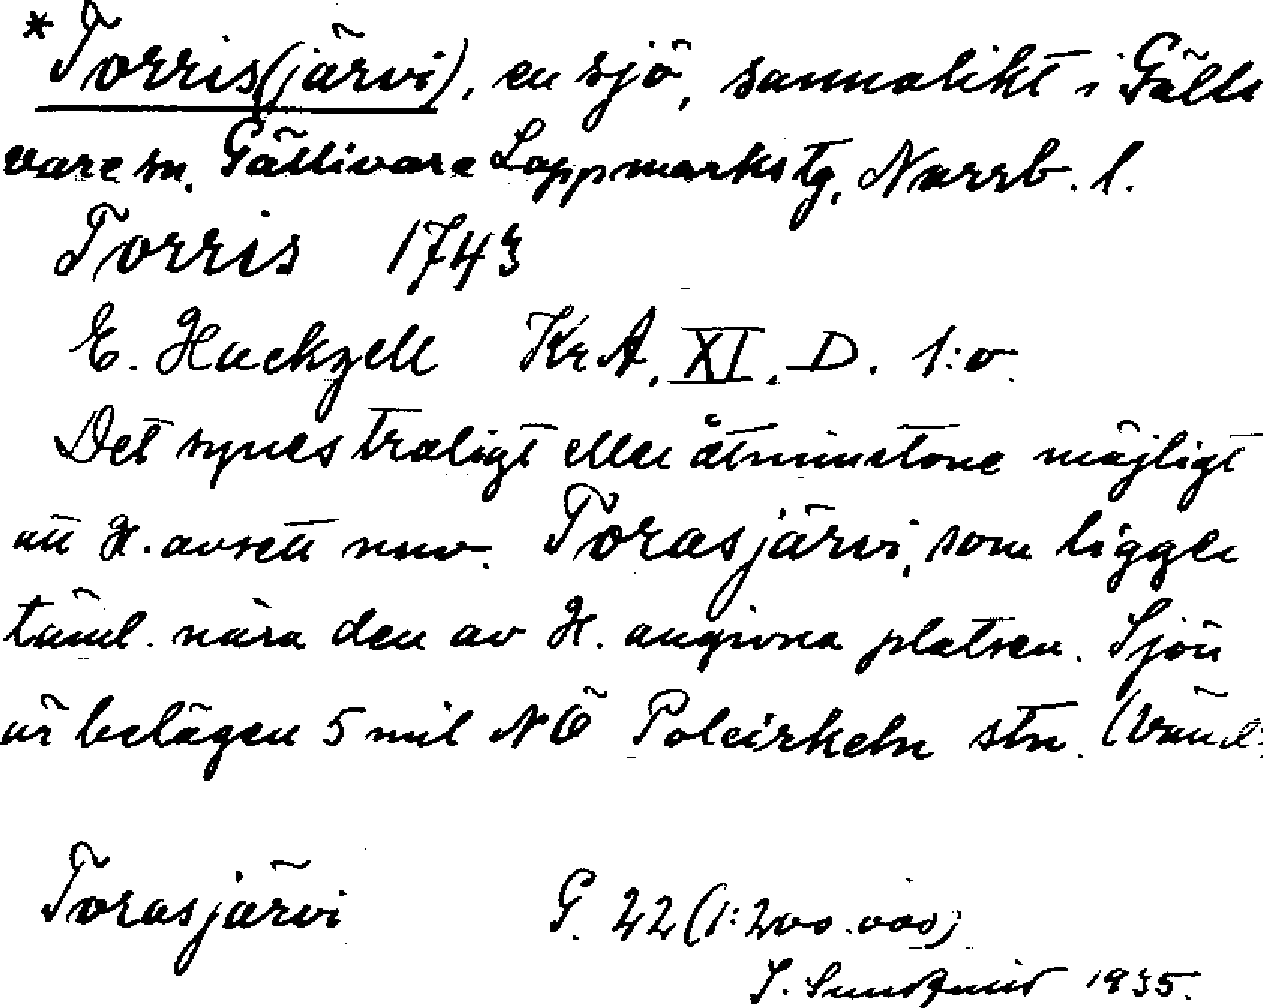 *Torris(järvi), en sjö, sannolikt i Gälli
vare sn, Gällivare Lappmarks tg, Norrb. l.
Torris 1743
E. Hackzell KrA, XI, D. 1:o.
Det synes troligt eller åtminstone möjligt
att H. avsett nuv. Torasjärvi, som ligger
täml. nära den av H. angivna platsen. Sjön
är belägen 5 mil NÖ Polcirkeln stn. (Vänd!
Torasjärvi G. 22 (1:200.000)
1935.